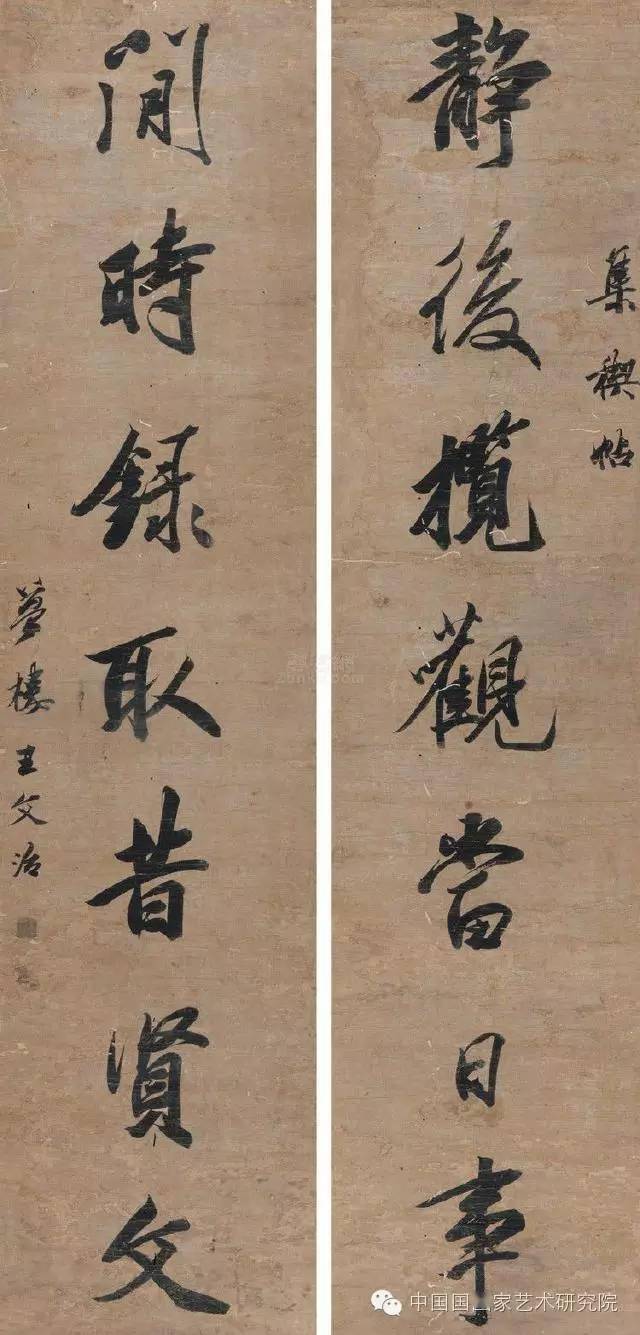 集稧帖
靜後攬觀當日事
閒時錄取昔賢文
夢樓王文治
中国国家艺术研究院